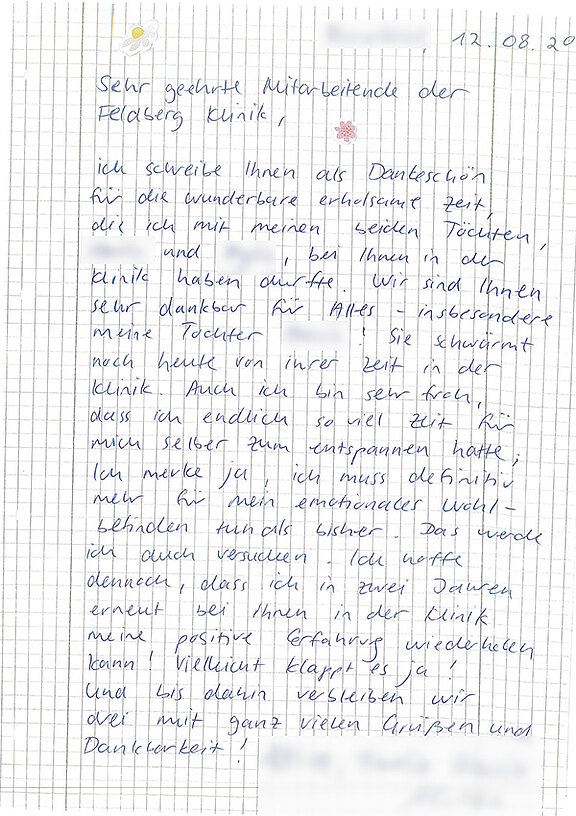 12.08.20
Sehr geehrte Mitarbeitende der
Feldberg Klinik,
ich schreibe Ihnen als Dankeschön
für die wunderbare erholsame Zeit,
die ich mit meinen beiden Töchten,
und , bei Ihnen in der
Klinik haben durfte. Wir sind Ihnen
sehr dankbar für Alles - insbesondere
meine Tochter ! Sie schwärmt
noch heute von ihrer Zeit in der
Klinik. Auch ich bin sehr froh,
dass ich endlich so viel Zeit für
mich selber zum entspannen hatte;
Ich merke ja, ich muss definitiv
mehr für mein emotionales Wohl-
befinden tun als bisher. Das werde
ich auch versuchen. Ich hoffe
dennoch, dass ich in zwei Jahren
erneut bei Ihnen in der Klinik
meine positive Erfahrug wiederholen
kann! Vielleicht klappt es ja!
Und bis dahin verbleiben wir
drei mit ganz vielen Grüßen und
Dankbarkeit!